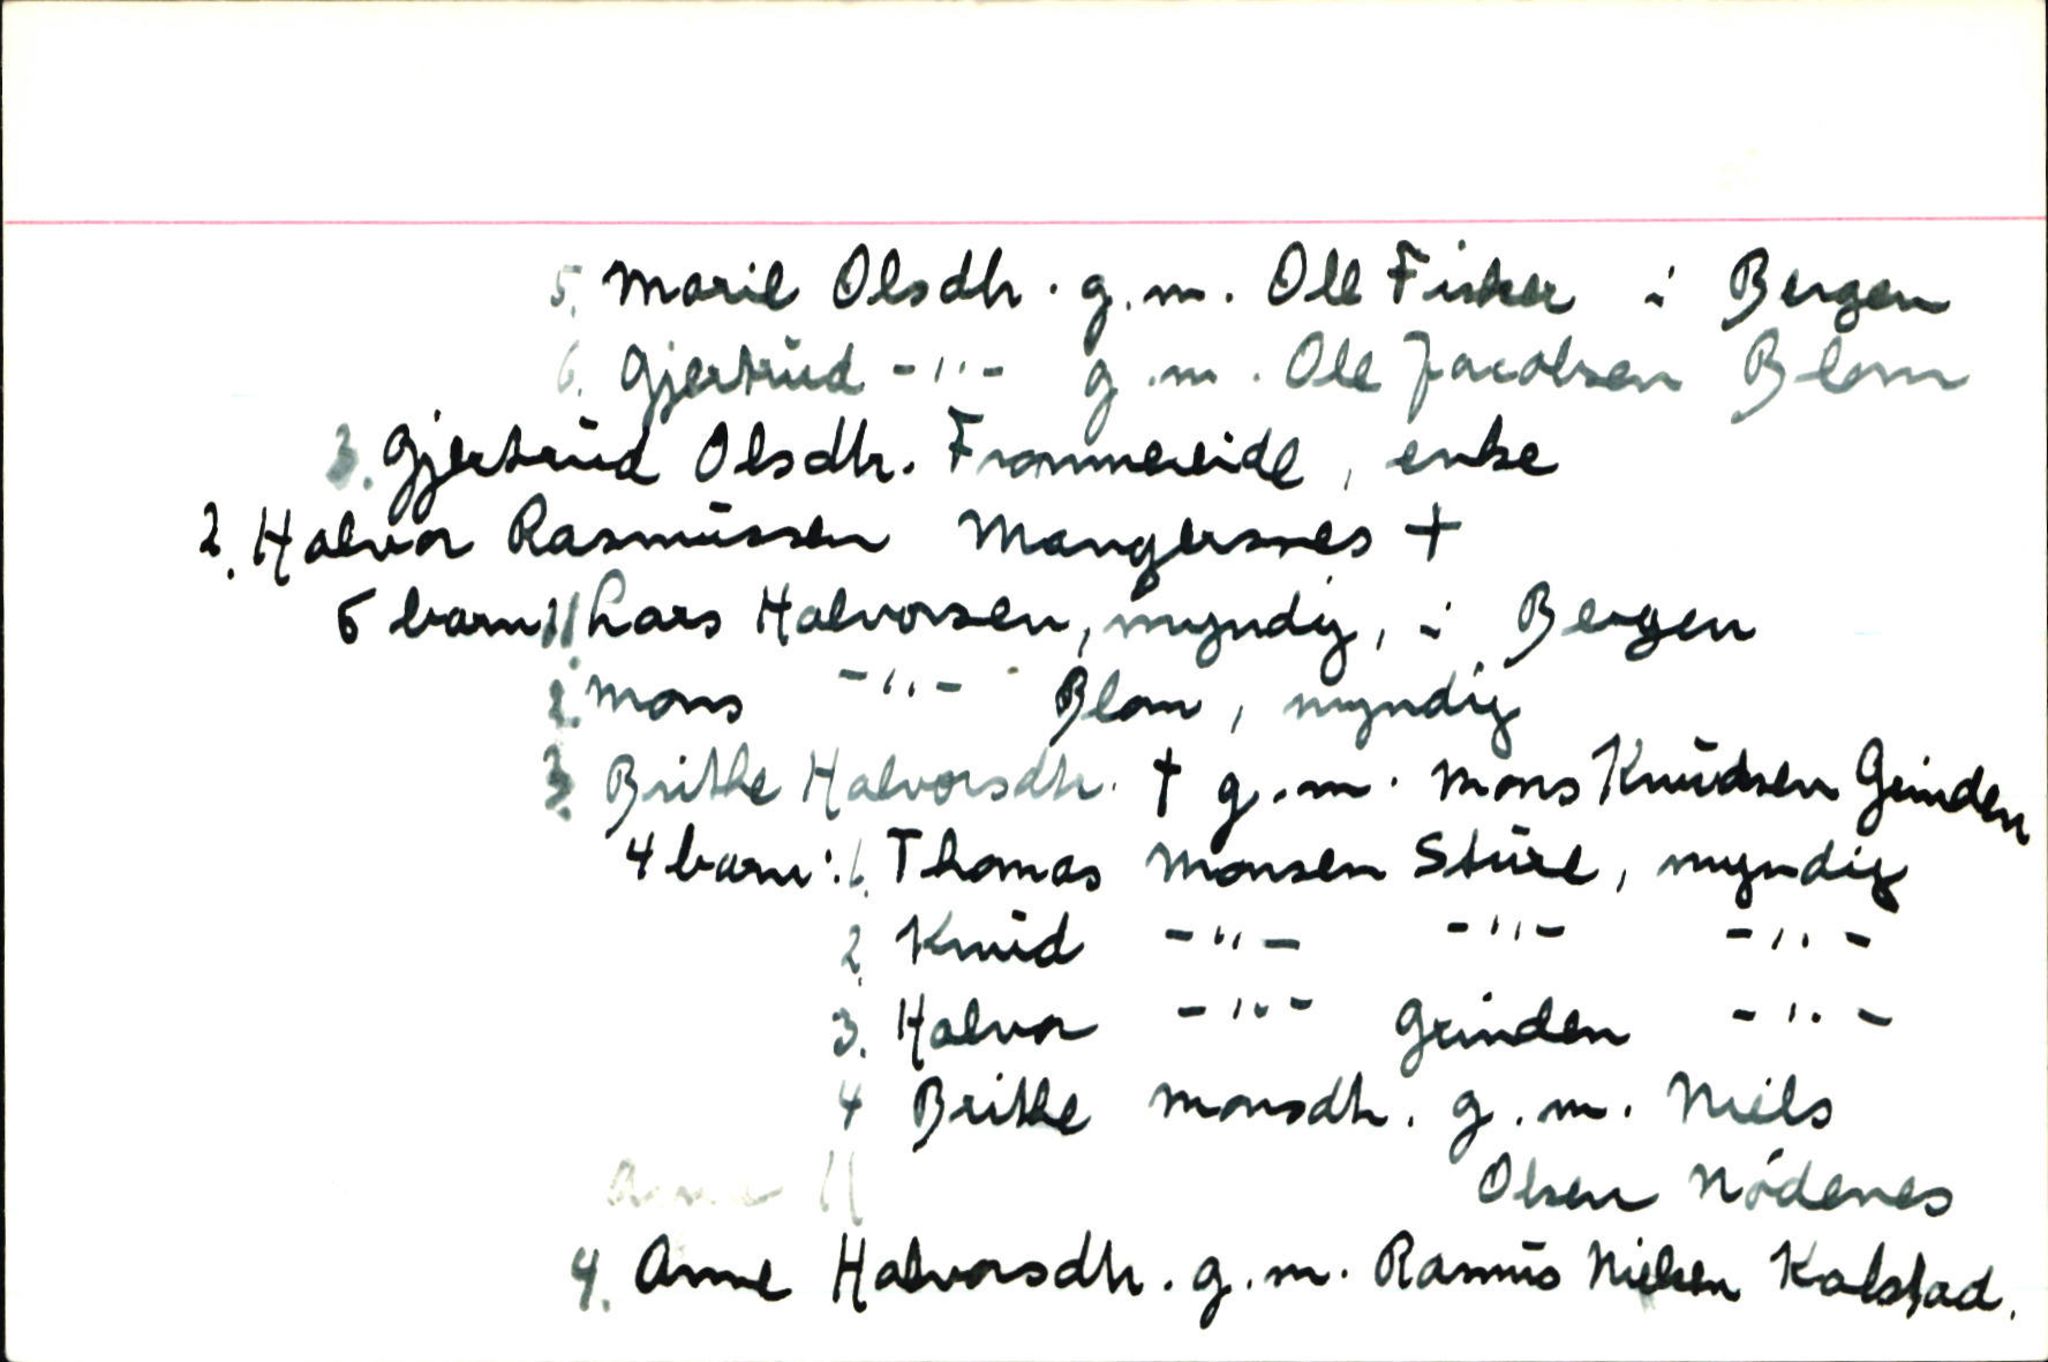 5. Marie Olsdtr. g.m. Ole Fisker i Bergen
6. Gjertrud -"- g.m. Ole Jacobsen Blom
3. Gjertrud Olsdtr. Frammereide, enke
2. Halvor Rasmussen Mangersnes †
5 barn 1. Lars Halvorsen, myndig, i Bergen
2. Mons -"- Blom, myndig
3. Brithe Halvorsdtr. † g.m. Mons Knudsen Grinden
4 barn: 1. Thomas Monsen Sture, myndig
2. Knud -"- -"- -"-
3. Halvor -"- Grinden -"-
4 Brithe Monsdtr. g.m. Niels
Olsen Nödenes
4. Anne Halvorsdtr. g.m. Rasmus Nielsen Kalstad.